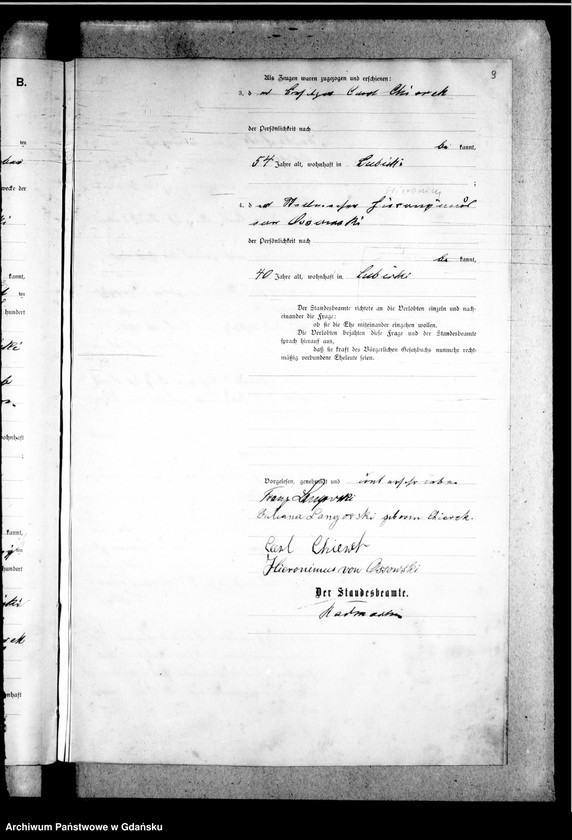 B.
9
Als Zeugen waren zugezogen und erschienen:
3. d er Besitzer Carl Chierek
der Persönlichkeit nach
be kannt,
54 Jahre alt, wohnhaft in Lubicki
;
4. d er Hieronimus
von Ossowski
der Persönlichkeit nach
be kannt,
40 Jahre alt, wohnhaft in Lubicki
Der Standesbeamte richtete an die Verlobten einzeln und nach-
einander die Frage:
ob sie die Ehe miteinander eingehen wollen.
Die Verlobten bejahten diese Frage und der Standesbeamte
sprach hierauf aus,
daß sie kraft des Bürgerlichen Gesetzbuchs nunmehr recht-
mäßig verbundene Eheleute seien.
Vorgelesen, genehmigt und unterschrieben
Franz Langowski
Juliana Langowski geborene Chierek.
Carl Chierek
Hieronimus von Ossowski
Der Standesbeamte.
kannt,
hundert
wohnhaft
kannt,
hundert
wohnhaft
Archiwum Państwowe w Gdańsku